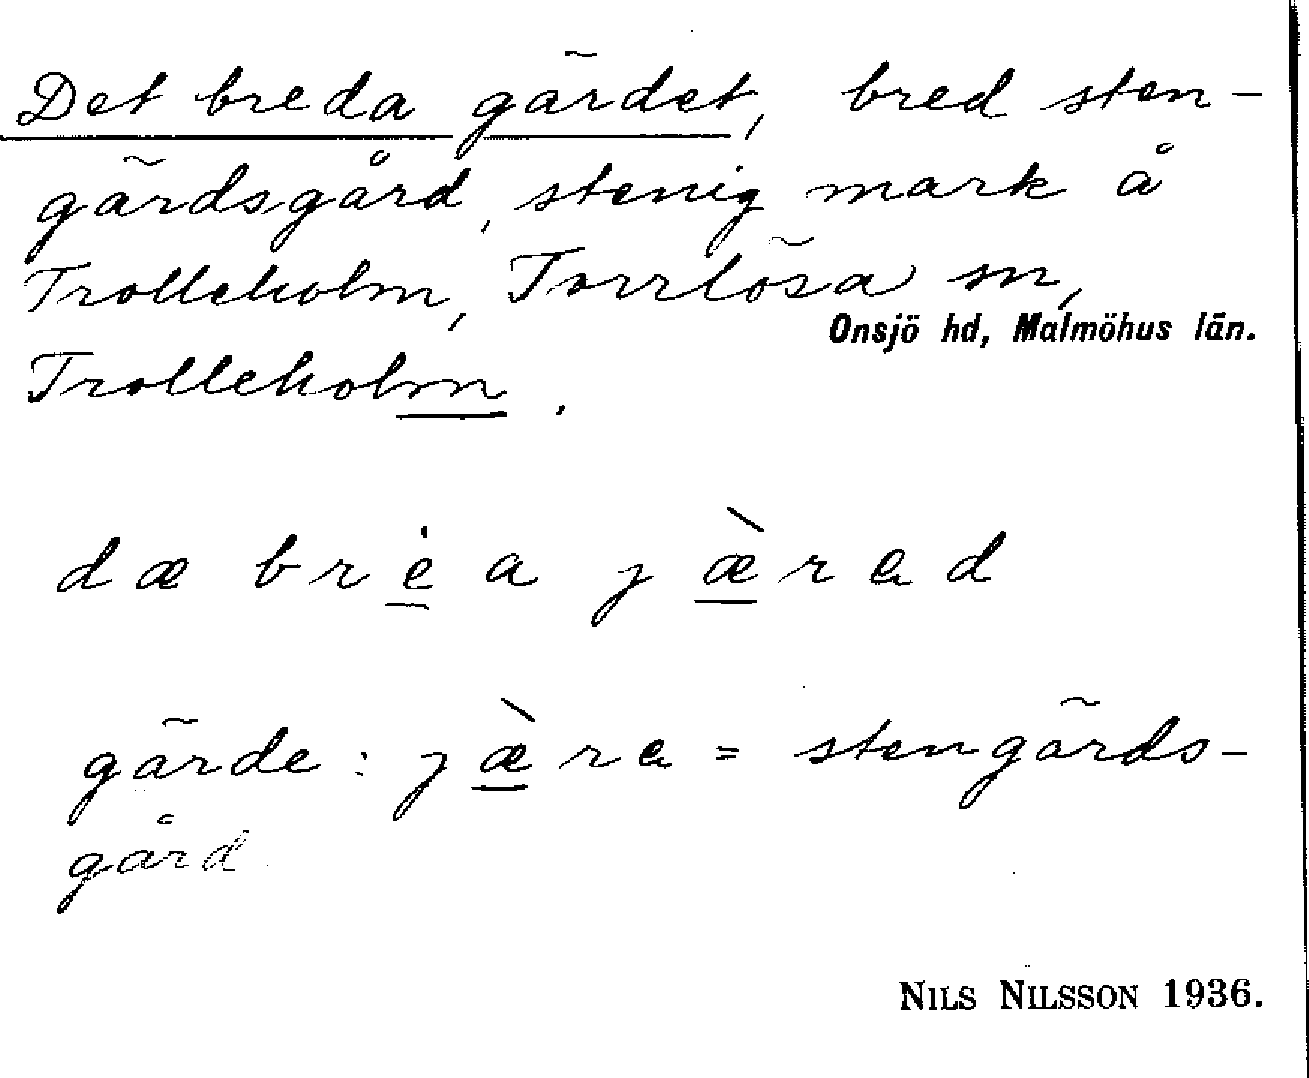 Det breda gärdet, bred sten-
gärdsgård, stenig mark å
Trolleholm, Torrlösa sn,
Onsjö hd, Malmöhus län.
Trolleholm.
dæ brėa jæ̀rad
gärde: jæ̀ra = stengärds-
gård
NILS NILSSON 1936.